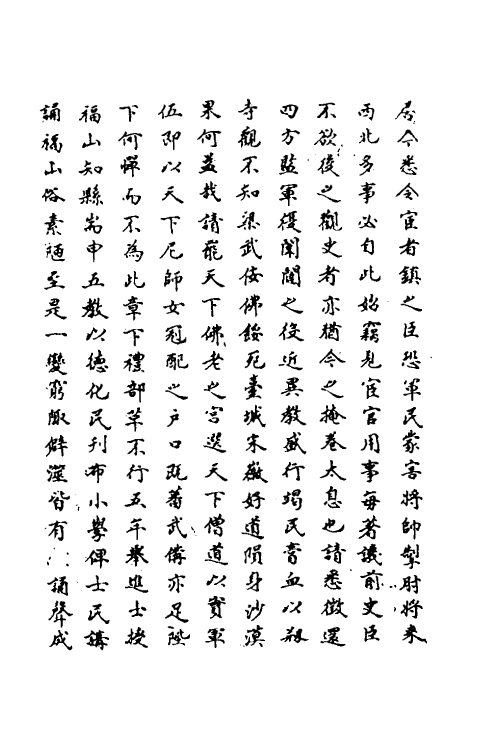 居今悉令宦者鎮之臣恐軍民蒙害將帥掣肘將来
西北多事必自此始竊見宦官用事每著譏前史臣
不欲後之觀史者亦猶今之掩卷太息也請悉徵還
四方監軍復閽闥之役近異教盛行竭民膏血以飬
寺觀不知梁武侫佛餒死臺城宋徽好道隕身沙漠
果何益我請罷天下佛老之宮選天下僧道以實軍
伍即以天下尼師女冠配之户口既蕃武備亦足陛
下何憚而不為此章下禮部革不行五年舉進士授
福山知縣耑申五教以德化民刊布小學俾士民講
誦福山俗素陋至是一變窮陬僻澨皆有誦聲成